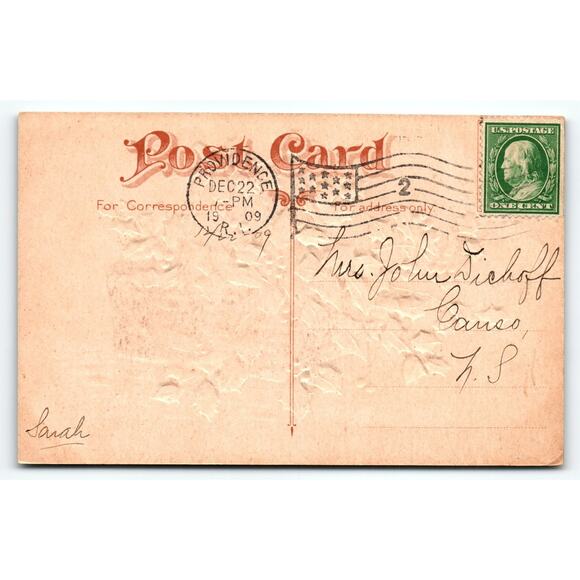 Post Card
U.S. POSTAGE
ONE CENT
PROVIDENCE
DEC 22
-PM
19 09
R.I.
2
For Correspondence
For address only
12/22/09
Mrs. John Dickoff
Canso,
N.S
Sarah